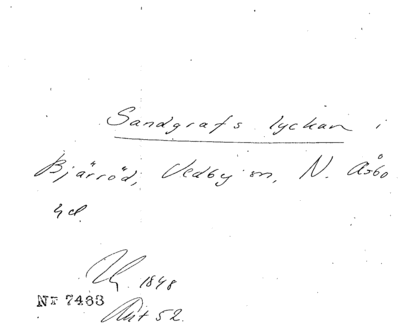 Sandgrafs lyckan i
Bjärröd, Vedby sn, N. Åsbo
hd.
1848
Nr 7483
Akt 52.